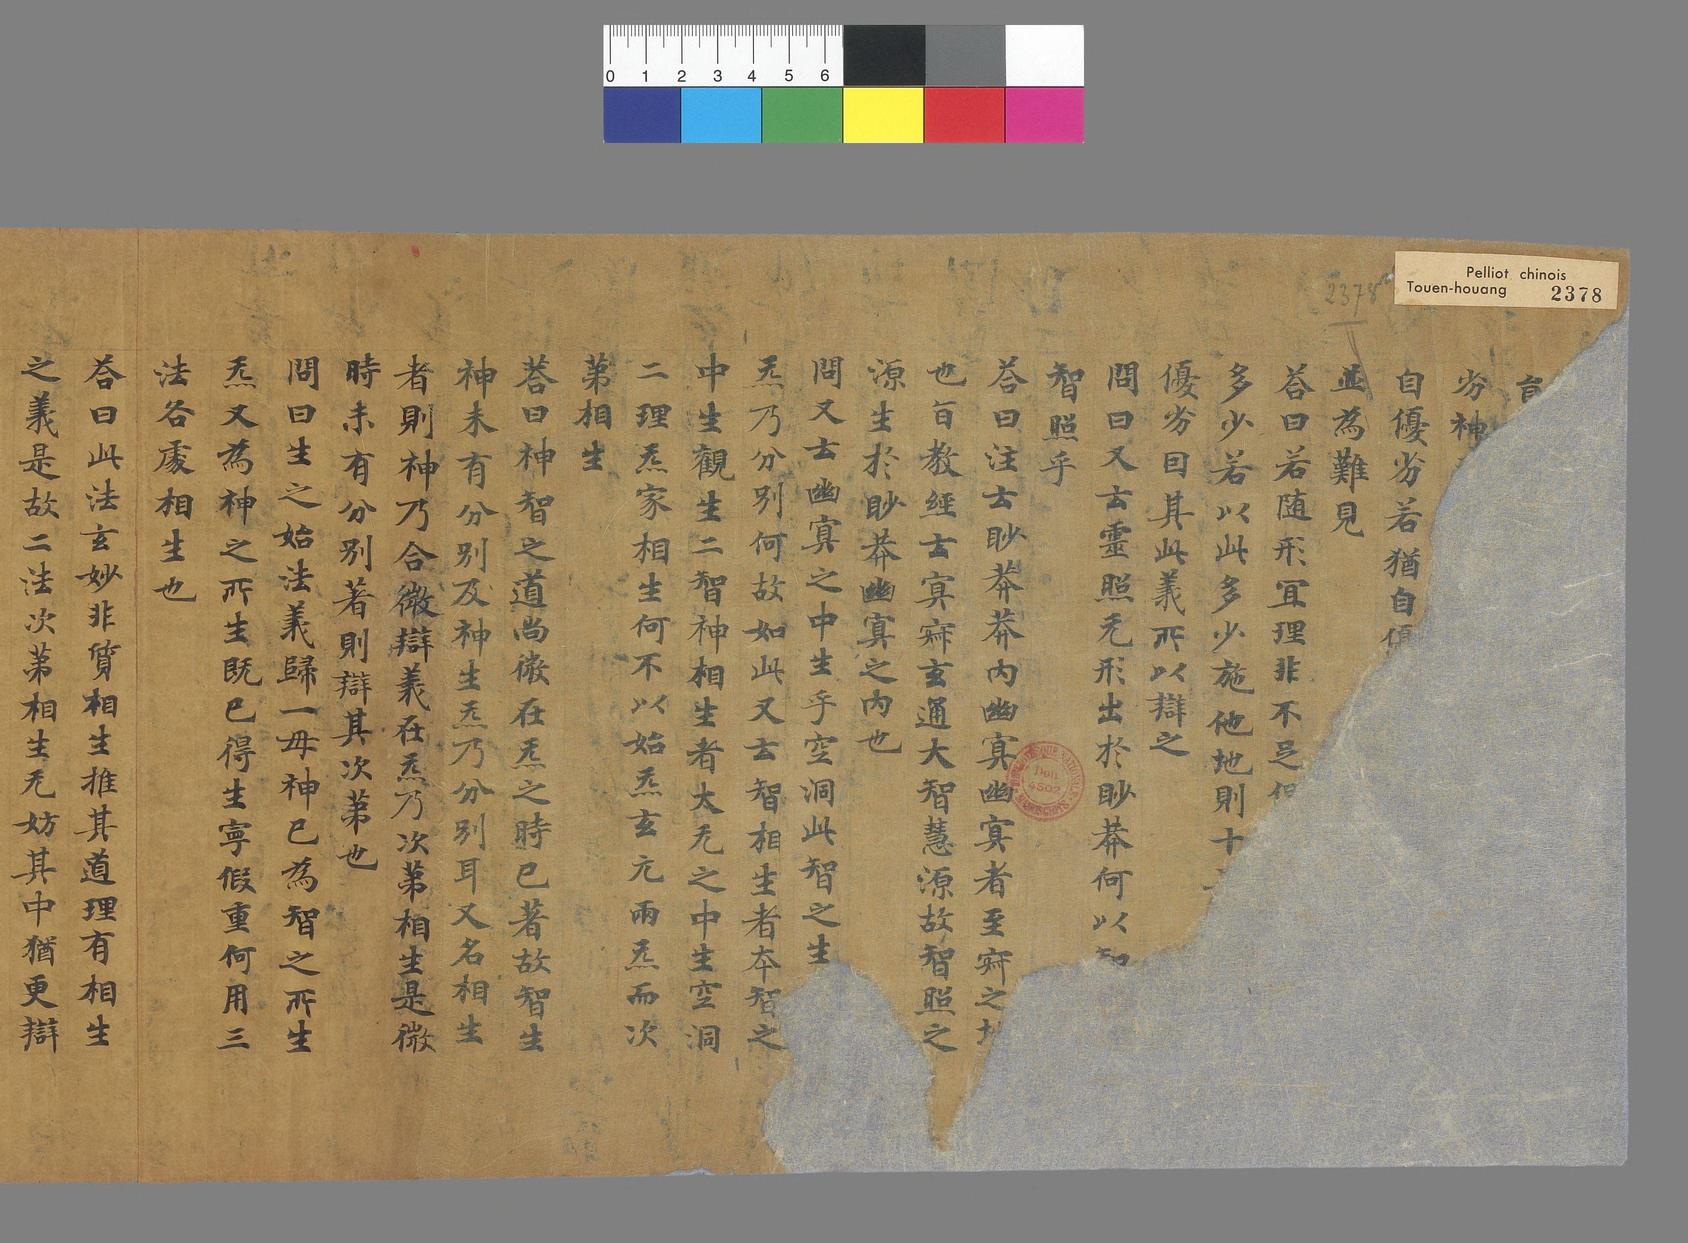 Pelliot chinois
Touen-houang 2378
2378
0 1 2 3 4 5 6
劣神
自優劣若猶自優
並為難見
荅曰若随形冝理非不足但
多少若以此多少施他地則十
優劣囙其此義所以辯之
問曰又云靈照无形出扵眇莽何以智
智照乎
荅曰注云眇莽莽内幽冥幽冥者至寂之地
也旨教經云冥寂玄通大智慧源故智照之
源生扵眇莽幽冥之内也
問又云幽冥之中生乎空洞此智之生
炁乃分別何故如此又云智相生者夲智之
中生觀生二智神相生者太无之中生空洞
二理炁家相生何不以始炁玄元兩炁而次
苐相生
荅曰神智之道尚微在炁之時已著故智生
神未有分別及神生炁乃分別耳又名相生
者則神乃合微辯義在炁乃次苐相生是微
時未有分別著則辯其次苐也
問曰生之始法義歸一毋神已為智之所生
炁又為神之所生既已得生寧假重何用三
法各處相生也
荅曰此法玄妙非質相生推其道理有相生
之義是故二法次苐相生无妨其中猶更辯